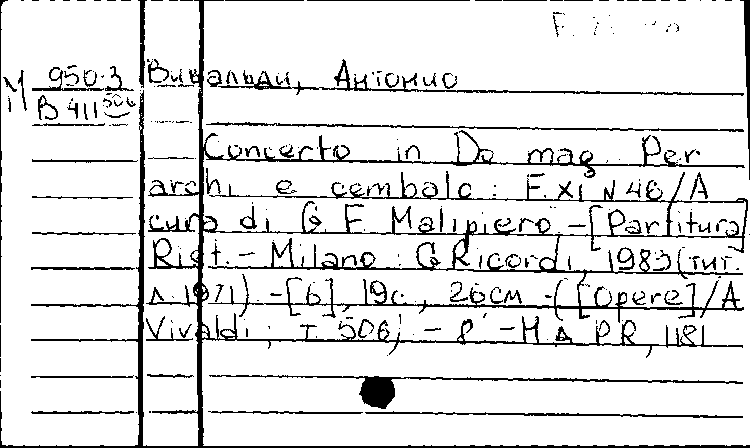 М 950-3 Вивальди, Антонио
В 411 506
Concerto in Do mag. Per
archi e cembalo : F. XI N 46/A
cura di G. F. Malipiero. - [Partitura]
Rist. - Milano : G. Ricordi, 1983 (тит.
л 1971) - [6], 19с., 26см - ([Opere] / A
Vivaldi ; т. 506) - 8' - Н д. PR, 1181